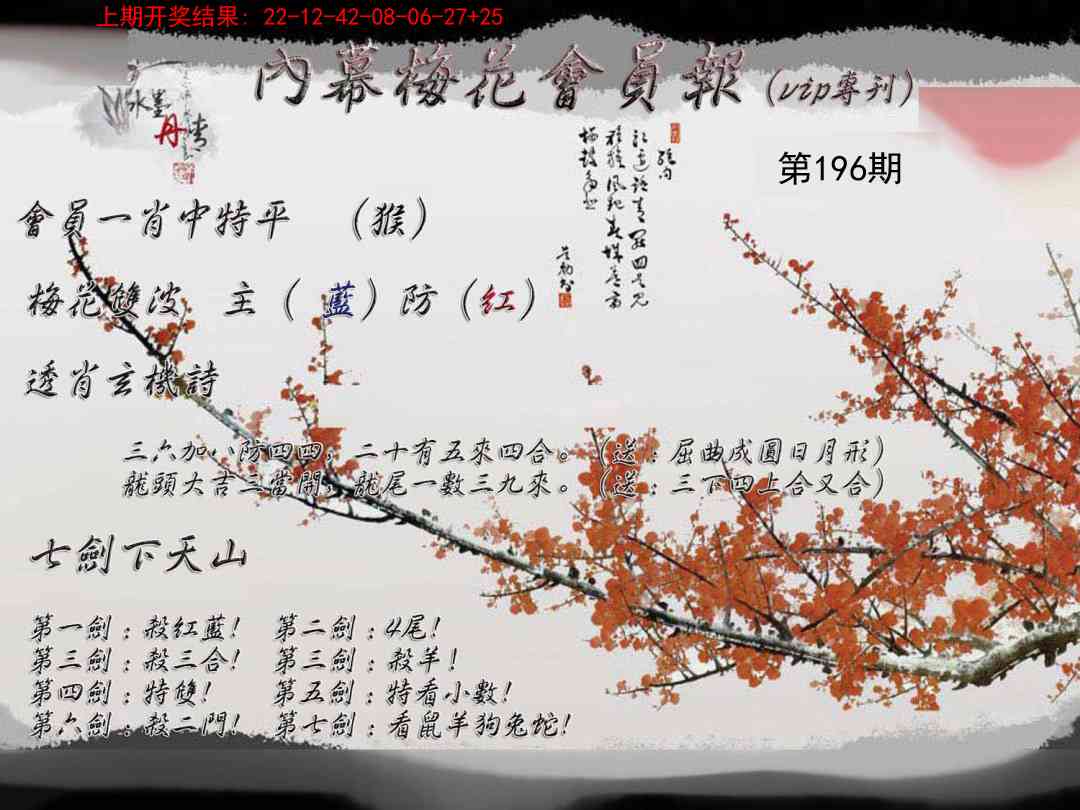 上期开奖结果: 22-12-42-08-06-27+25
內幕梅花會員報(vip專刊)
水墨
丹青
第196期
會員一肖中特平 （猴）
梅花雙波 主（藍）防（紅）
透肖玄機詩
三六加八防四四，二十有五來四合。（送：屈曲成圓日月形）
龍頭大吉三當開，龍尾一數三九來。（送：三下四上合又合）
七劍下天山
第一劍：殺紅藍！ 第二劍：4尾！
第三劍：殺三合！ 第三劍：殺羊！
第四劍：特雙！ 第五劍：特看小數！
第六劍：殺二門！ 第七劍：看鼠羊狗兔蛇！